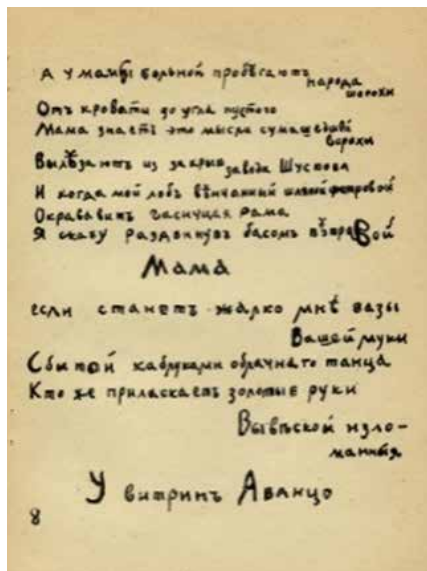 А у мамы больной пробѣгаютъ народа
шорохи
Отъ кровати до угла пустого
Мама знаетъ это мысли сумашедшей
ворохи
Вылѣзаютъ из за крыш завода Шустова
И когда мой лобъ вѣнчанный шляпой фетровой
Окрававитъ гаснущая рама
Я скажу раздвинувъ басомъ вѣтра вой
Мама
если станетъ жалко мнѣ вазы
Вашей муки
Сбитой каблуками облачнаго танца
Кто же приласкаетъ золотые руки
Вывѣской изло-
манныя
У витринъ Аванцо
8